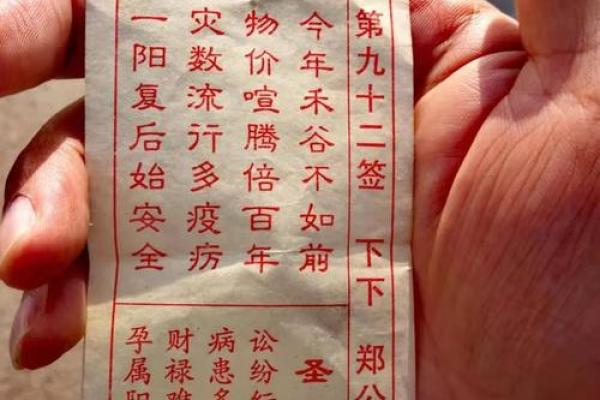 第九十二签 下下 郑公
今年禾谷不如前
物价喧腾倍百年
灾数流行多疫疠
一阳复后始安全
圣
讼纷
病患多
财禄难
孕属阳